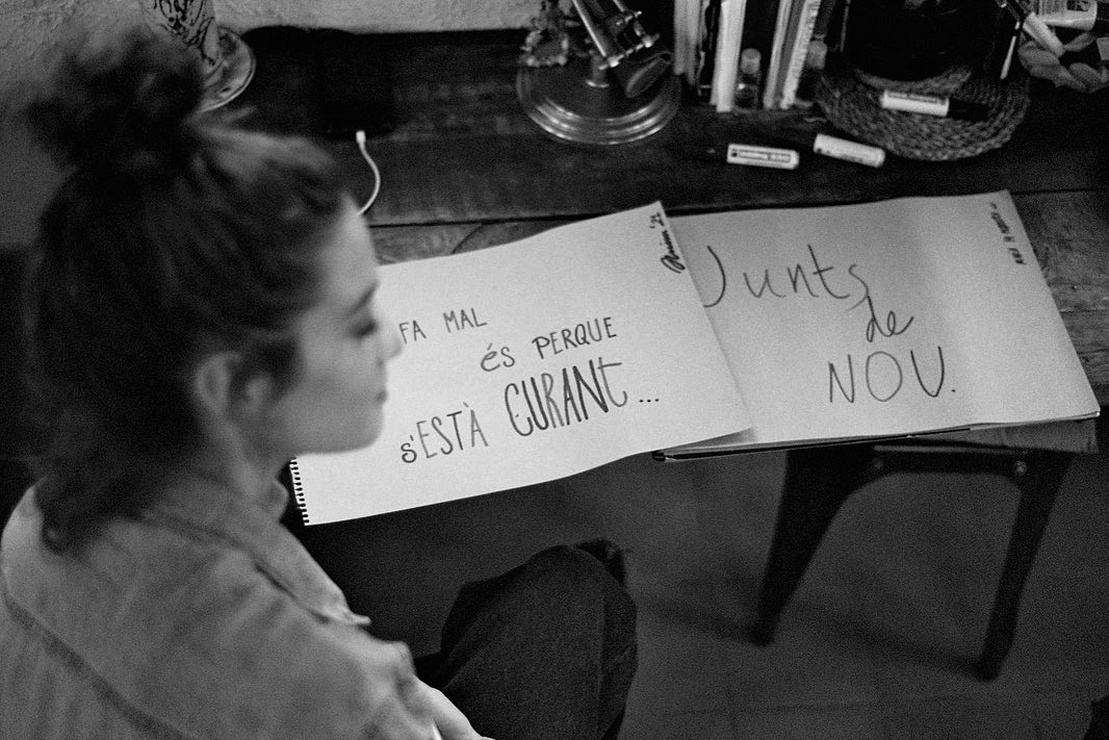 FA MAL
és PERQUE
s'ESTÀ CURANt...
Junts
de
NOU.